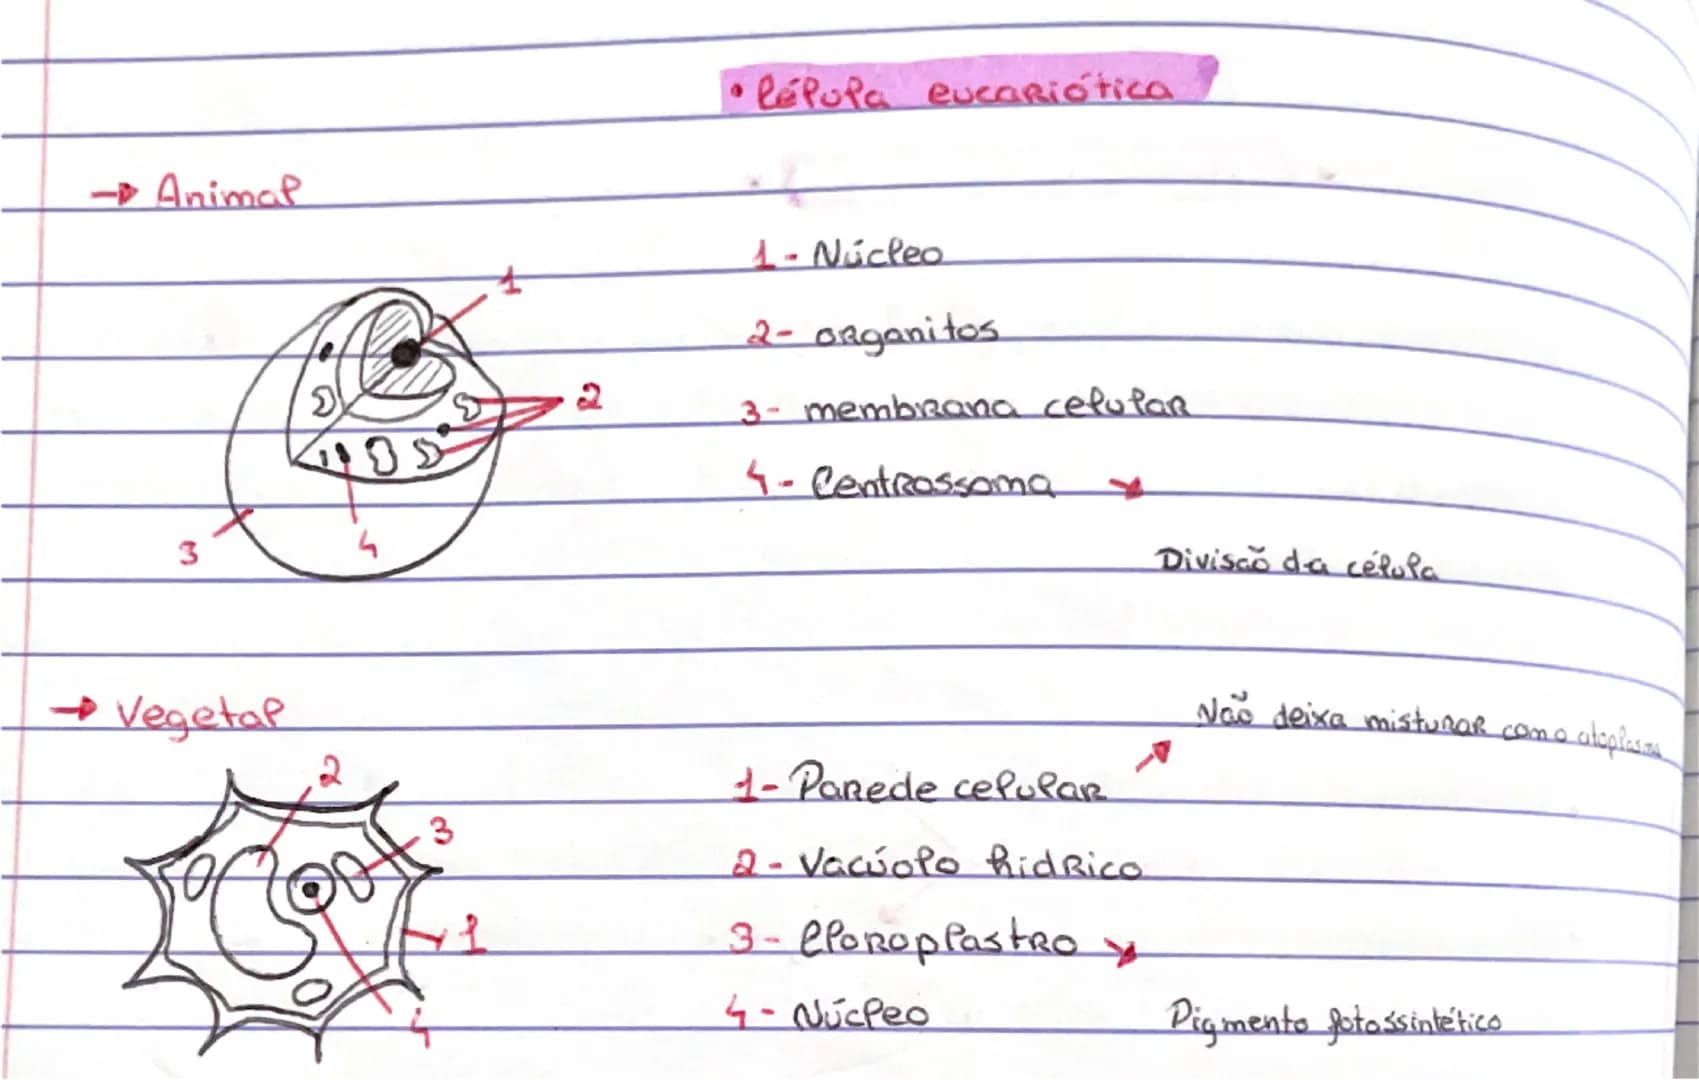 • Célula eucariótica
→ Animal
1 - Núcleo
2 - organitos
3 - membrana celular
4 - Centrossoma ↘
Divisão da célula
1
2
3
4
→ Vegetal
Não deixa misturar com o citoplasma
1 - Parede celular ↗
2 - Vacúolo hídrico
3 - Cloroplastro ↘
4 - Núcleo
Pigmento fotossintético
2
3
1
4